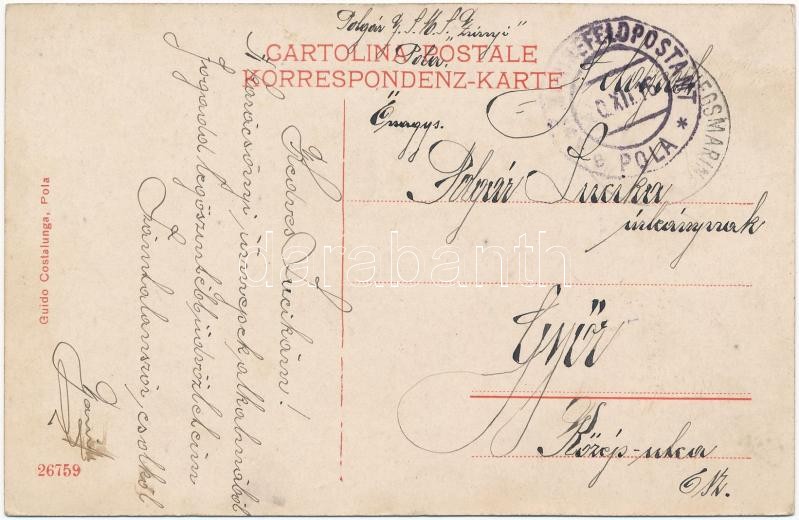 Polgár Gy. S.M.S. "Zrinyi"
Pola.
CARTOLINA POSTALE
KORRESPONDENZ-KARTE
FELDPOSTAMT
XII. 15
e POLA *
EGSMARIN
Őnagys.
Polgár Lucika
úrleánynak
Győr
Közép-utca
Kedves Lucikám!
A karácsonyi ünnepek alkalmából
fogadd legőszintébb üdvözleteim
Számtalanszor csókol
Guido Costalunga, Pola
26759
darabanth